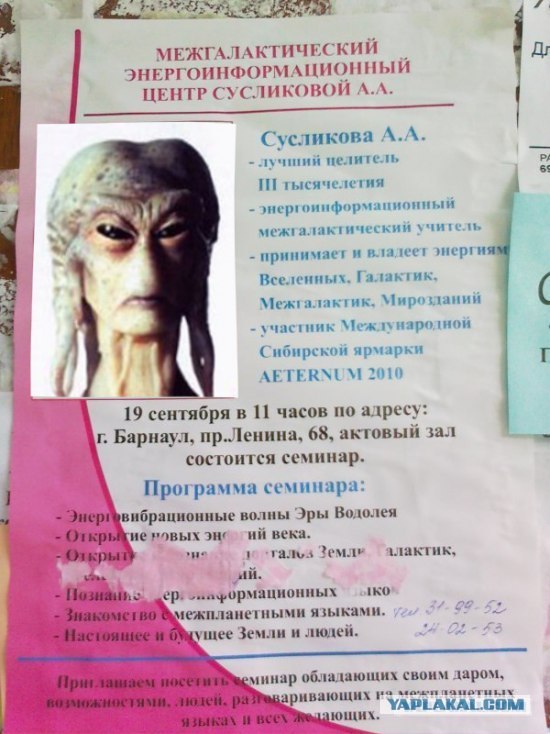 МЕЖГАЛАКТИЧЕСКИЙ
ЭНЕРГОИНФОРМАЦИОННЫЙ
ЦЕНТР СУСЛИКОВОЙ А.А.
Сусликова А.А.
- лучший целитель
III тысячелетия
- энергоинформационный
межгалактический учитель
- принимает и владеет энергиям
Вселенных, Галактик,
Межгалактик, Мирозданий
- участник Международной
Сибирской ярмарки
AETERNUM 2010
19 сентября в 11 часов по адресу:
г. Барнаул, пр.Ленина, 68, актовый зал
состоится семинар.
Программа семинара:
- Энерговибрационные волны Эры Водолея
- Открытие новых энергий века.
- Земли
- Знакомство с межпланетными языками. тел 31-99-52
- Настоящее и будущее Земли и людей. 24-02-53
Приглашаем посетить семинар обладающих своим даром,
возможностями, людей, разговаривающих на межпланетных
языках и всех желающих.
YAPLAKAL.COM